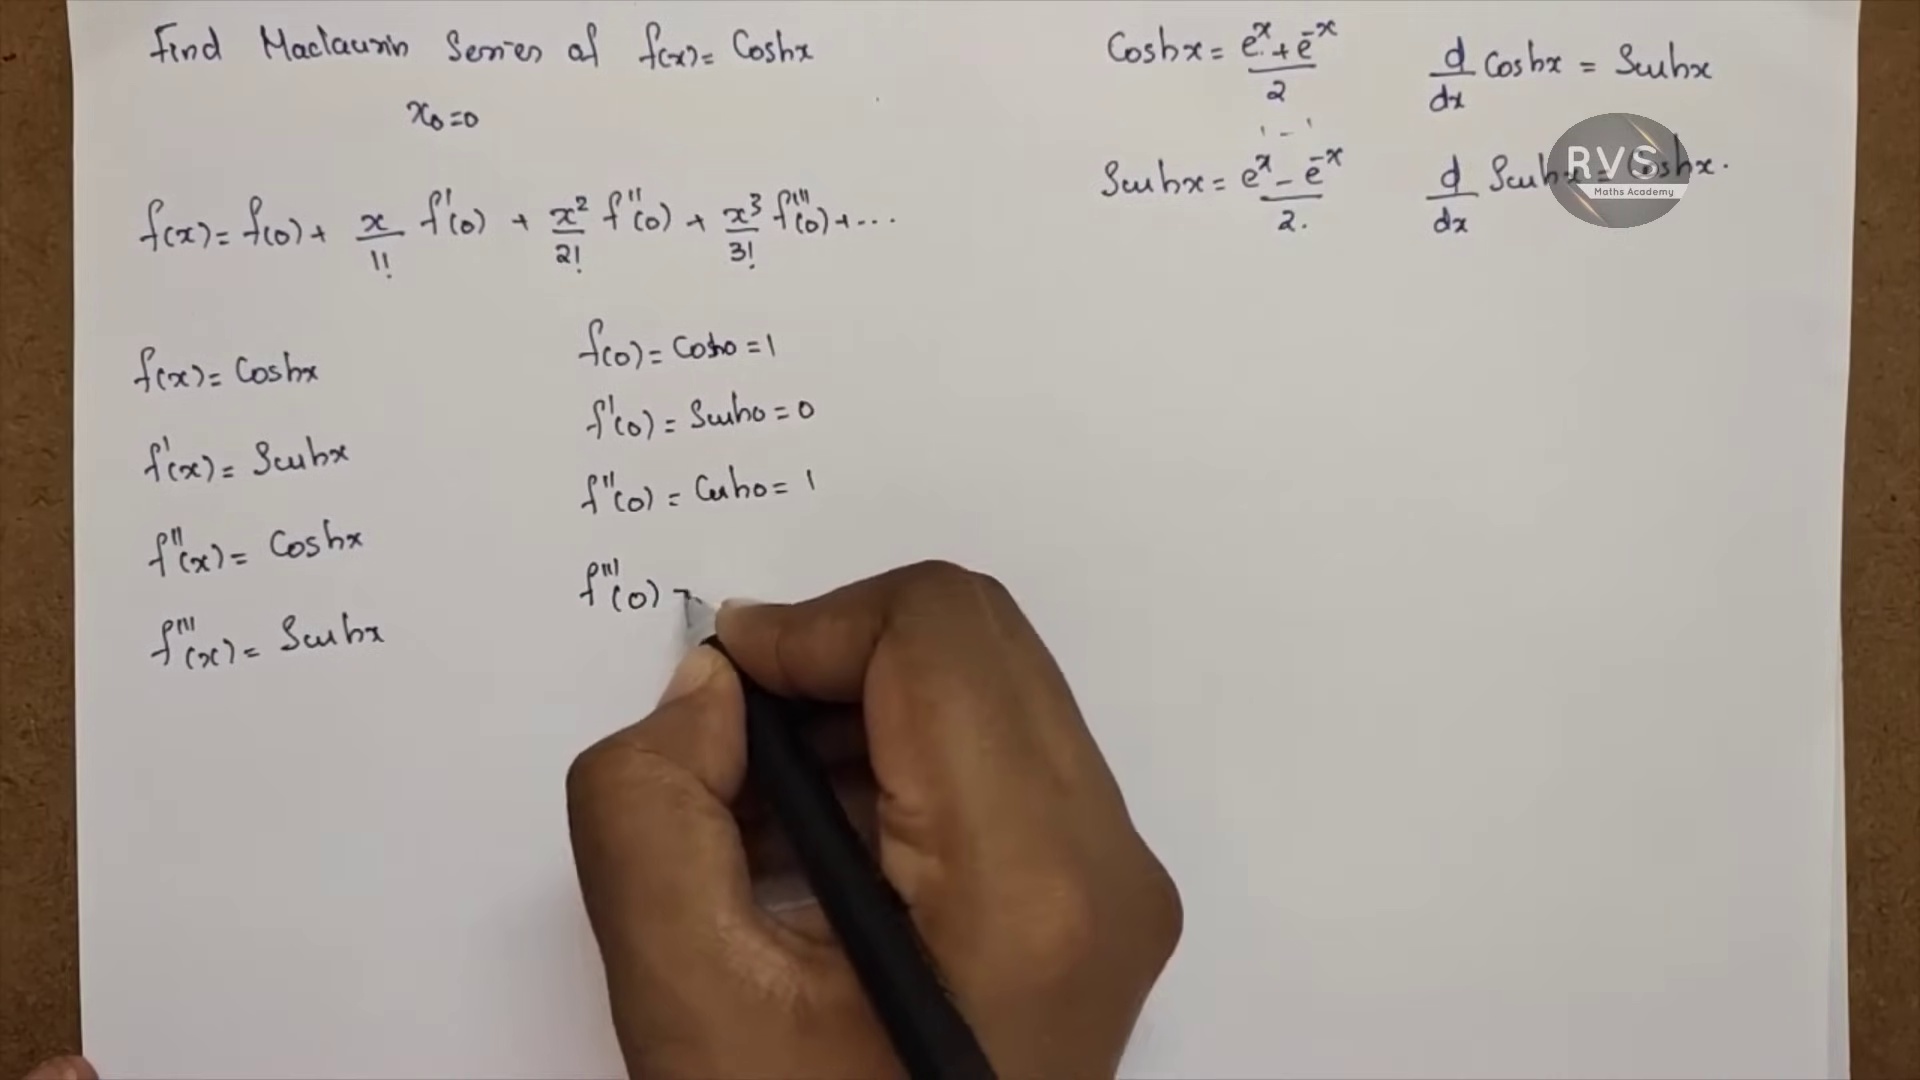 Find Maclaurin Series of f(x) = Coshx
x₀ = 0
f(x) = f(0) + x/1! f'(0) + x²/2! f''(0) + x³/3! f'''(0) + ...
f(x) = Coshx
f'(x) = Sinhx
f''(x) = Coshx
f'''(x) = Sinhx
f(0) = Cosh0 = 1
f'(0) = Sinh0 = 0
f''(0) = Cosh0 = 1
f'''(0) =
Coshx = eˣ + e⁻ˣ / 2
Sinhx = eˣ - e⁻ˣ / 2.
d/dx Coshx = Sinhx
d/dx Sinhx = Coshx.
RVS
Maths Academy